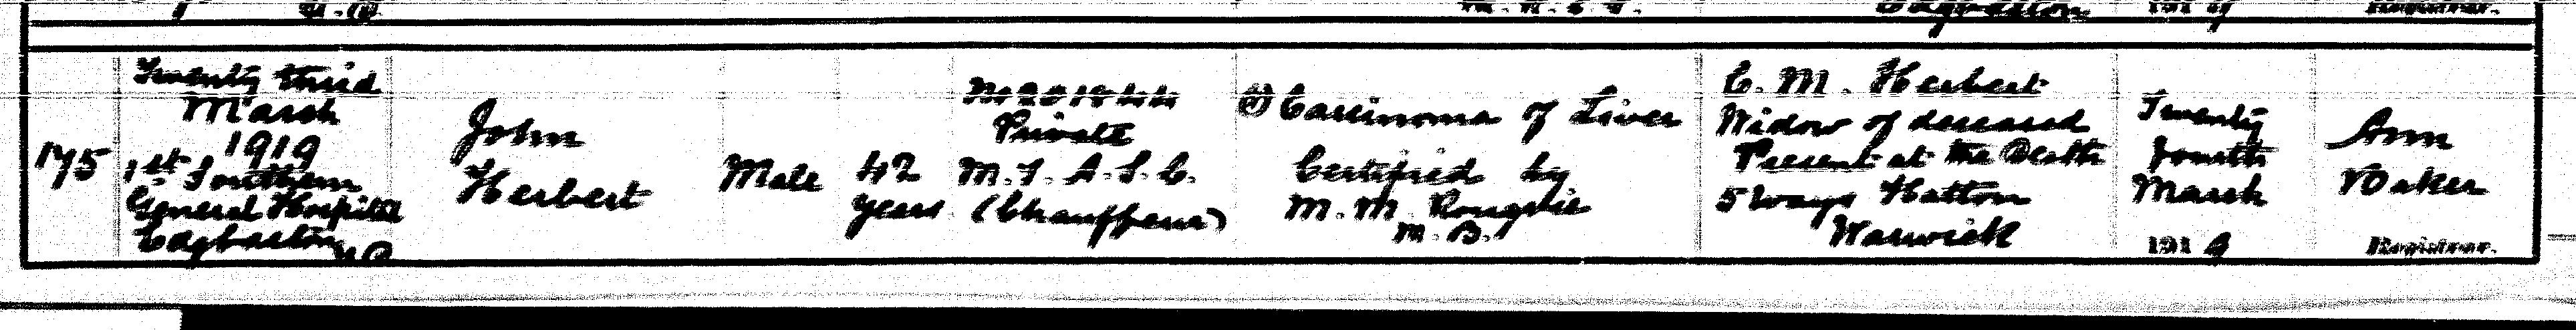 175
Twenty third
March
1919
1st Southern
General Hospital
Edgbaston
John
Herbert
Male
42
years
M2201844
Private
M.T. A.S.C.
(Chauffeur)
(1) Carcinoma of Liver
Certified by
M. M.
M.B.
C. M. Herbert
Widow of deceased
Present at the Death
5 Ways Hatton
Warwick
Twenty
fourth
March
1919
Ann
Baker
Registrar.